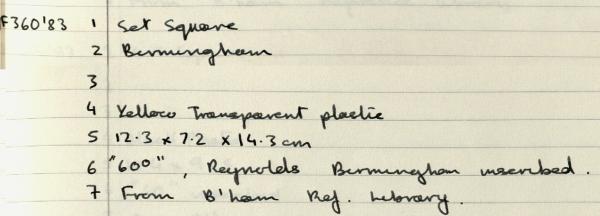 F360'83 1 Set Square
2 Birmingham
3
4 Yellow Transparent plastic
5 12.3 x 7.2 x 14.3 cm
6 "600", Reynolds Birmingham inscribed.
7 From B'ham Ref. Library.